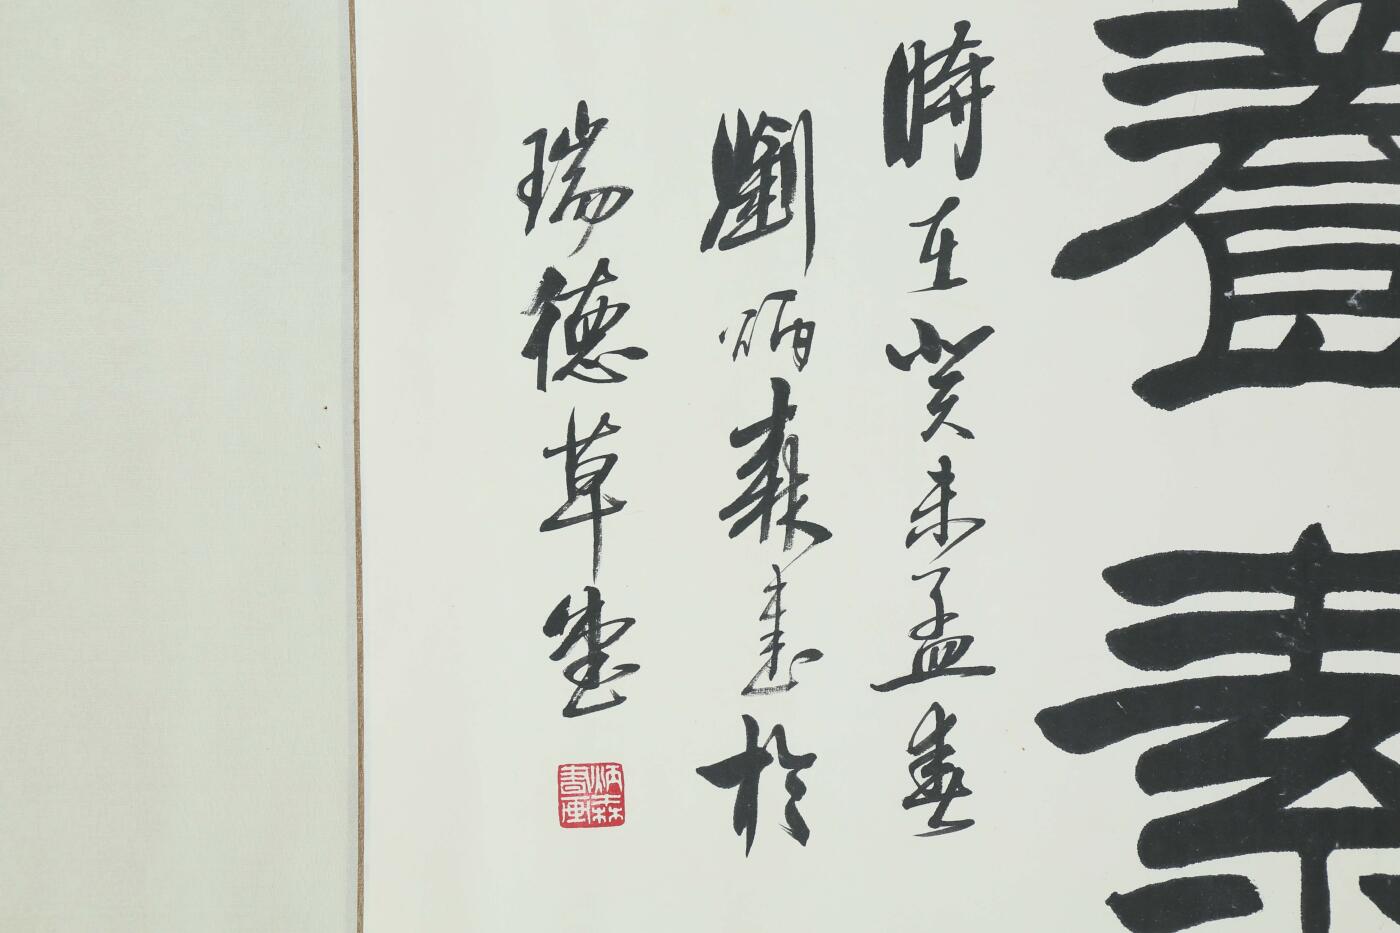 養素
時在癸未孟春
劉炳森書於
瑞德草堂
炳森書画